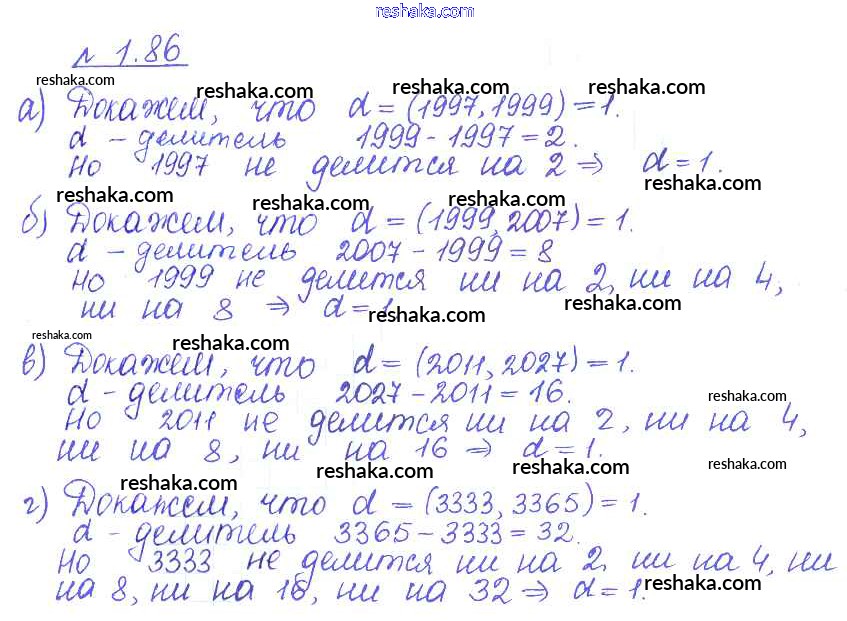 reshaka.com
№ 1.86
reshaka.com
reshaka.com reshaka.com reshaka.com
а) Докажем, что d = (1997, 1999) = 1.
d – делитель 1999 - 1997 = 2.
Но 1997 не делится на 2 ⇒ d = 1.
reshaka.com reshaka.com reshaka.com reshaka.com
б) Докажем, что d = (1999, 2007) = 1.
d – делитель 2007 - 1999 = 8
Но 1999 не делится ни на 2, ни на 4,
ни на 8 ⇒ d = 1
reshaka.com reshaka.com
reshaka.com reshaka.com
в) Докажем, что d = (2011, 2027) = 1.
d - делитель 2027 - 2011 = 16.
reshaka.com
Но 2011 не делится ни на 2, ни на 4,
ни на 8, ни на 16 ⇒ d = 1.
reshaka.com reshaka.com reshaka.com reshaka.com
г) Докажем, что d = (3333, 3365) = 1.
d - делитель 3365 - 3333 = 32.
Но 3333 не делится ни на 2, ни на 4, ни
на 8, ни на 16, ни на 32 ⇒ d = 1.
reshaka.com